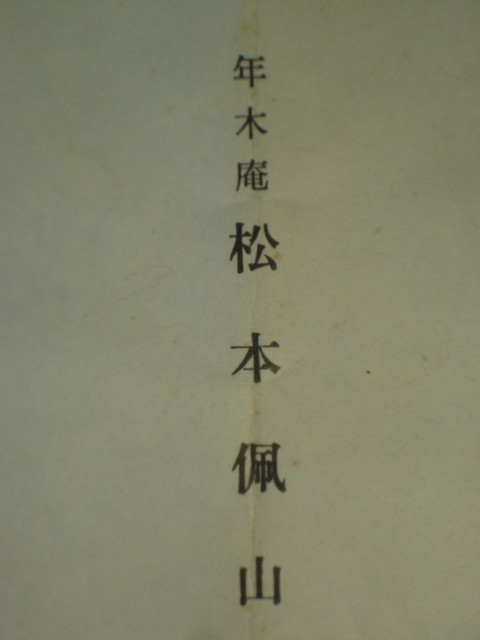 年木庵松本佩山